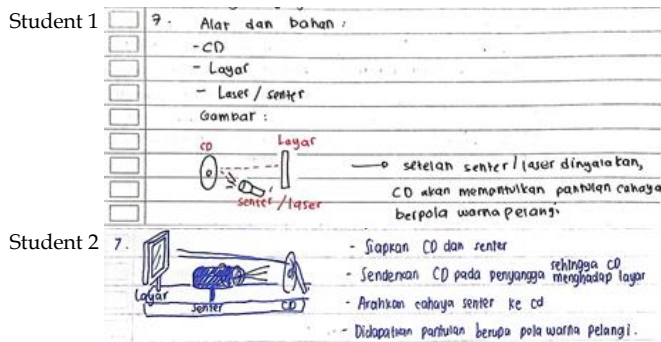 Student 1
7. Alat dan bahan :
- CD
- Layar
- Laser / senter
Gambar :
CD
Layar
senter / laser
setelah senter / laser dinyalakan,
CD akan memantulkan pantulan cahaya
berpola warna pelangi.
Student 2
7.
Layar
senter
CD
- Siapkan CD dan senter
- Senderkan CD pada penyangga sehingga CD menghadap layar
- Arahkan cahaya senter ke cd
- Didapatkan pantulan berupa pola warna pelangi.